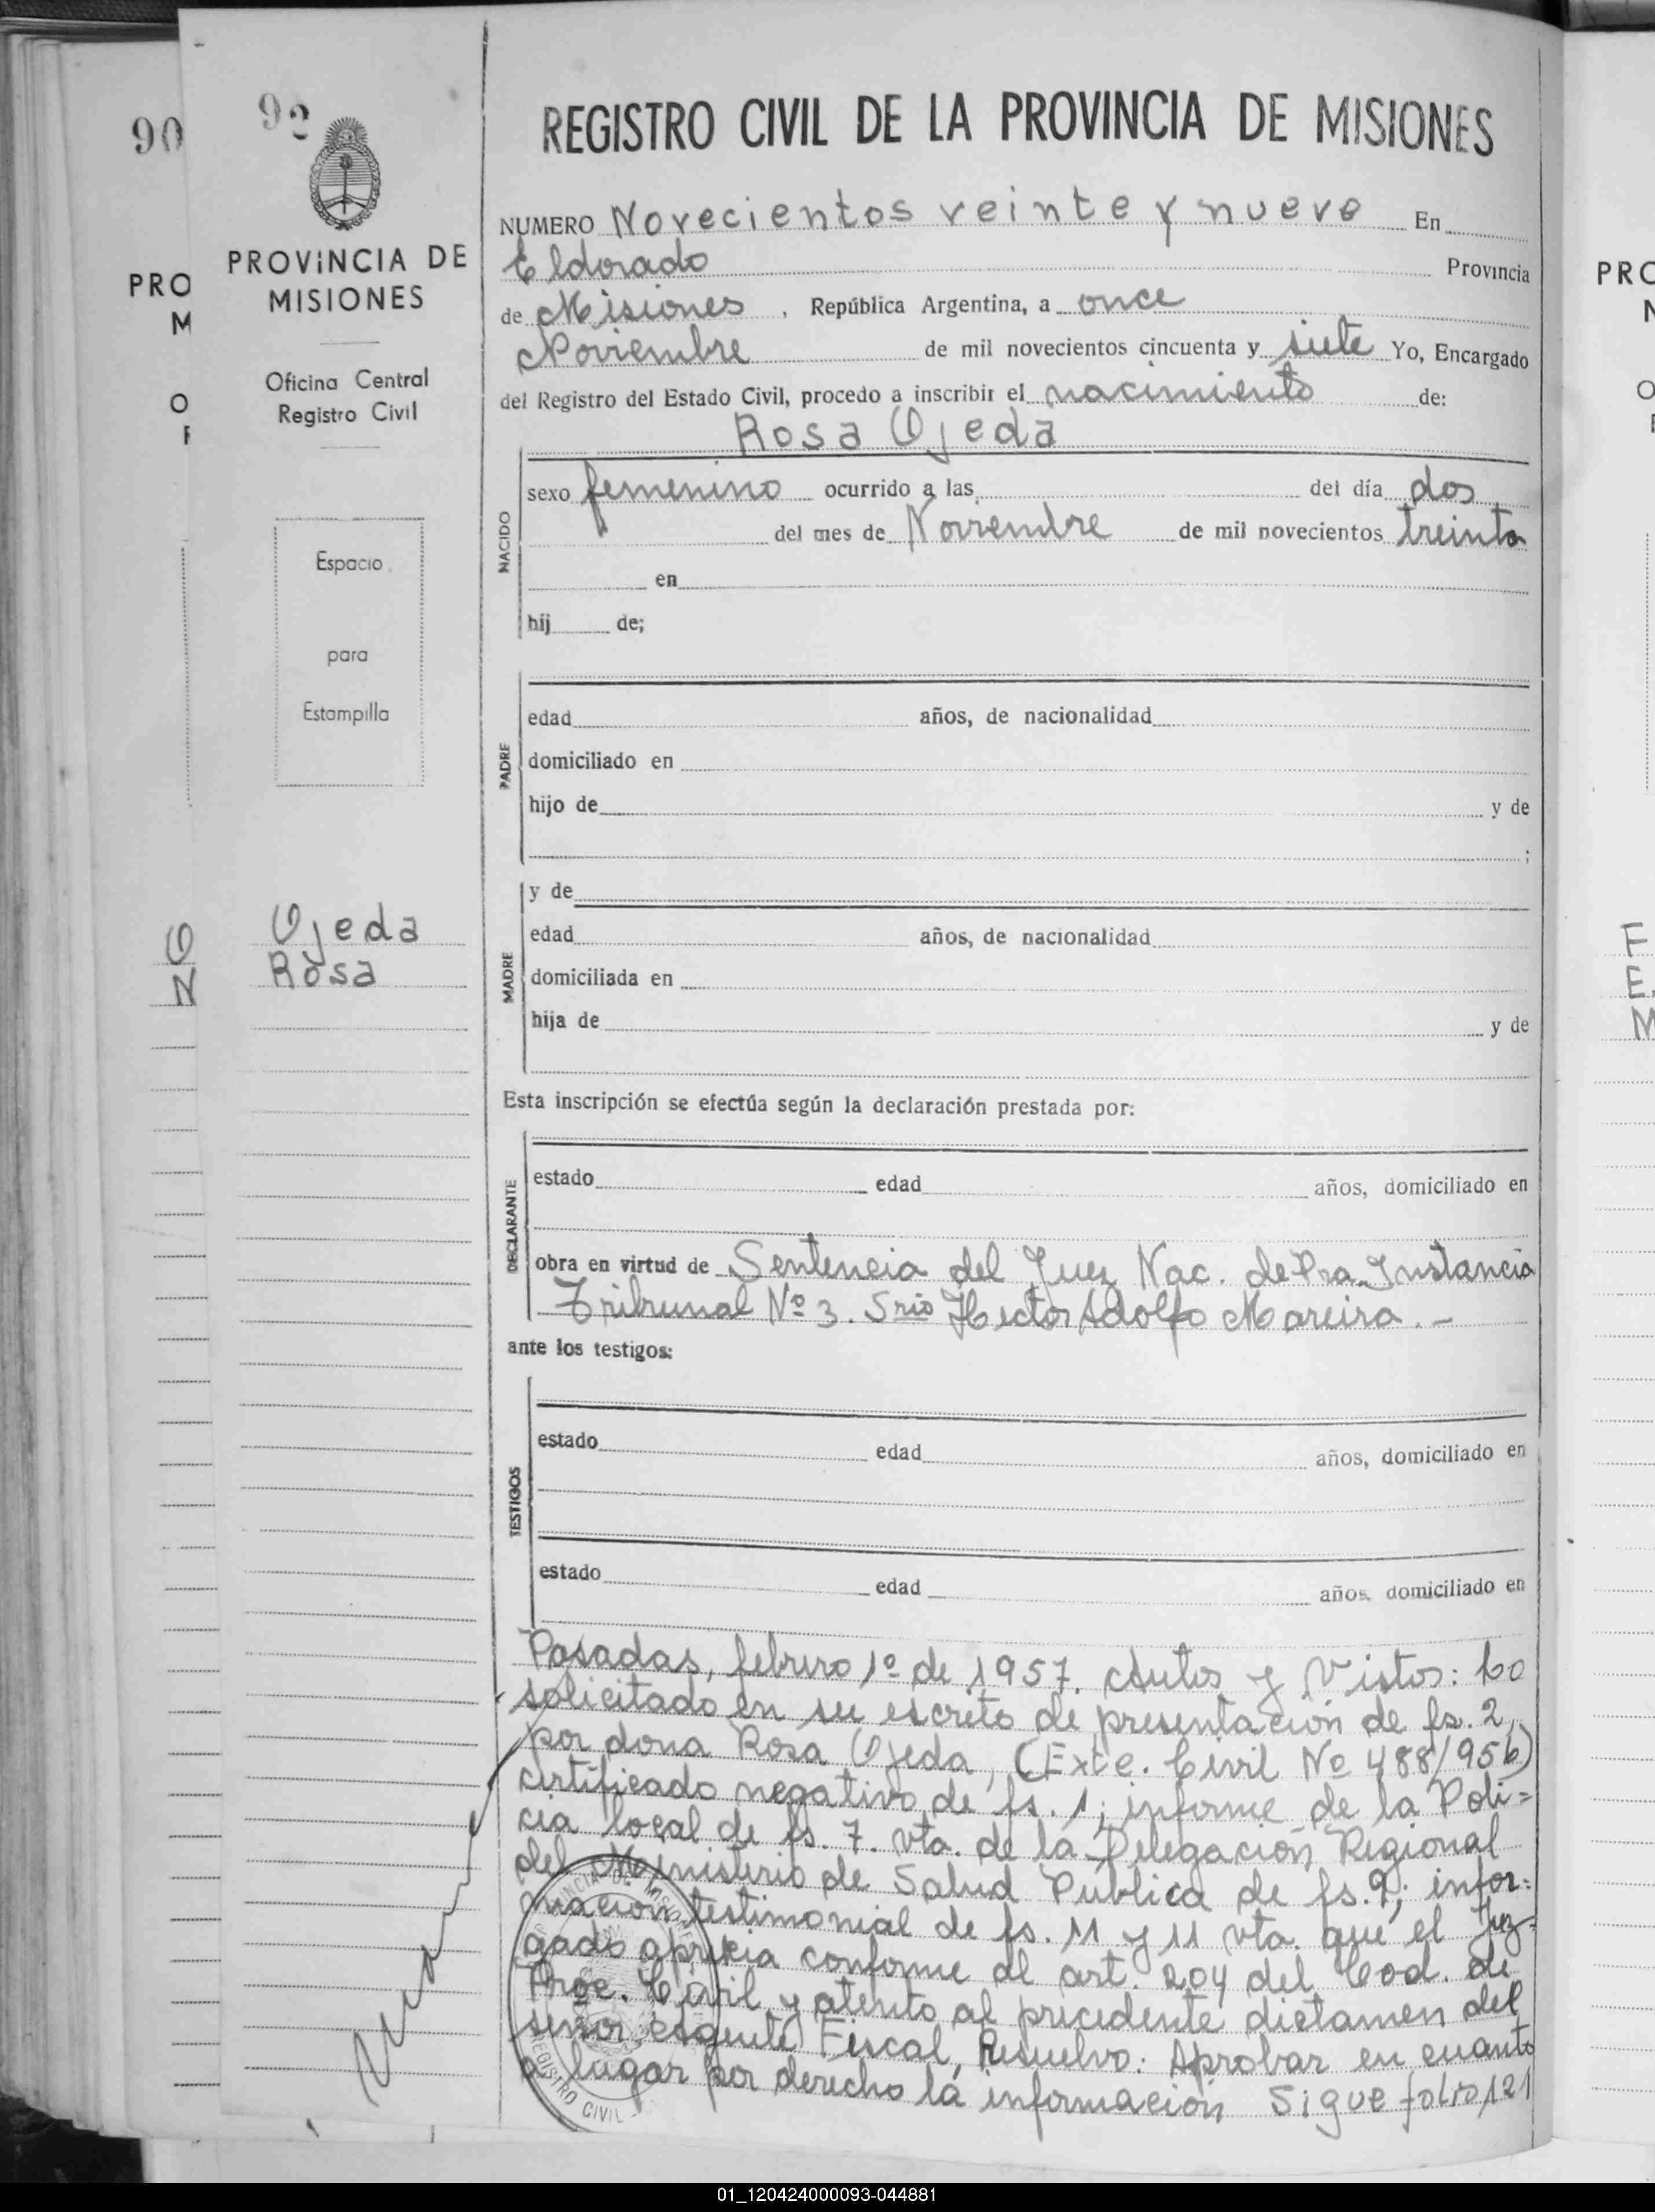 90
92
PROVINCIA DE
MISIONES
Oficina Central
Registro Civil
Espacio
para
Estampilla
Ojeda
Rosa
PRO
M
O
F
O
N
REGISTRO CIVIL DE LA PROVINCIA DE MISIONES
NUMERO Novecientos veinte y nueve En
Eldorado Provincia
de Misiones , República Argentina, a once
Noviembre de mil novecientos cincuenta y siete Yo, Encargado
del Registro del Estado Civil, procedo a inscribir el nacimiento de:
Rosa Ojeda
NACIDO
sexo femenino ocurrido a las del día dos
del mes de Noviembre de mil novecientos treinta
en
hij de;
PADRE
edad años, de nacionalidad
domiciliado en
hijo de y de
;
MADRE
y de
edad años, de nacionalidad
domiciliada en
hija de y de
Esta inscripción se efectúa según la declaración prestada por:
DECLARANTE
estado edad años, domiciliado en
obra en virtud de Sentencia del Juez Nac. de Pra. Instancia
Tribunal Nº 3. Srio Hector Adolfo Mareira. -
ante los testigos:
TESTIGOS
estado edad años, domiciliado en
estado edad años, domiciliado en
Posadas, febrero 1º de 1957. Autos y Vistos: Lo
solicitado en su escrito de presentación de fs. 2,
por dona Rosa Ojeda, (Exte. Civil Nº 488/956)
certificado negativo de fs. 1; informe de la Poli=
cia local de fs. 7. vta. de la Delegación Regional
del Ministerio de Salud Publica de fs. 9; infor=
macion testimonial de fs. 11 y 11 vta. que el Juz=
gado aprecia conforme al art. 204 del Cod. de
Proc. Civil y atento al precedente dictamen del
señor Agente Fiscal, Resuelvo: Aprobar en cuanto
a lugar por derecho la información Sigue folio 121
REGISTRO CIVIL
PRO
F
E.
M
01_120424000093-044881